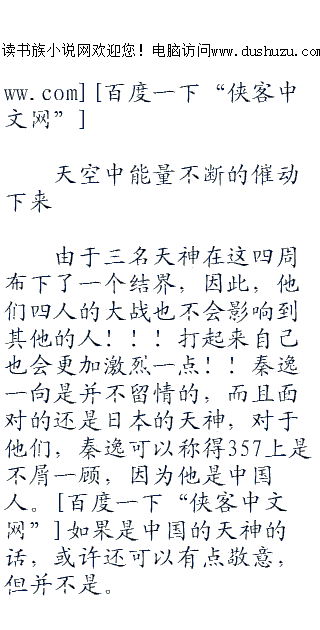 读书族小说网欢迎您！电脑访问www.dushuzu.com
ww.com][百度一下“侠客中
文网”]
天空中能量不断的催动
下来
由于三名天神在这四周
布下了一个结界，因此，他
们四人的大战也不会影响到
其他的人！！！打起来自己
也会更加激烈一点！！秦逸
一向是并不留情的，而且面
对的还是日本的天神，对于
他们，秦逸可以称得357上是
不屑一顾，因为他是中国
人。[百度一下“侠客中文
网”]如果是中国的天神的
话，或许还可以有点敬意，
但并不是。